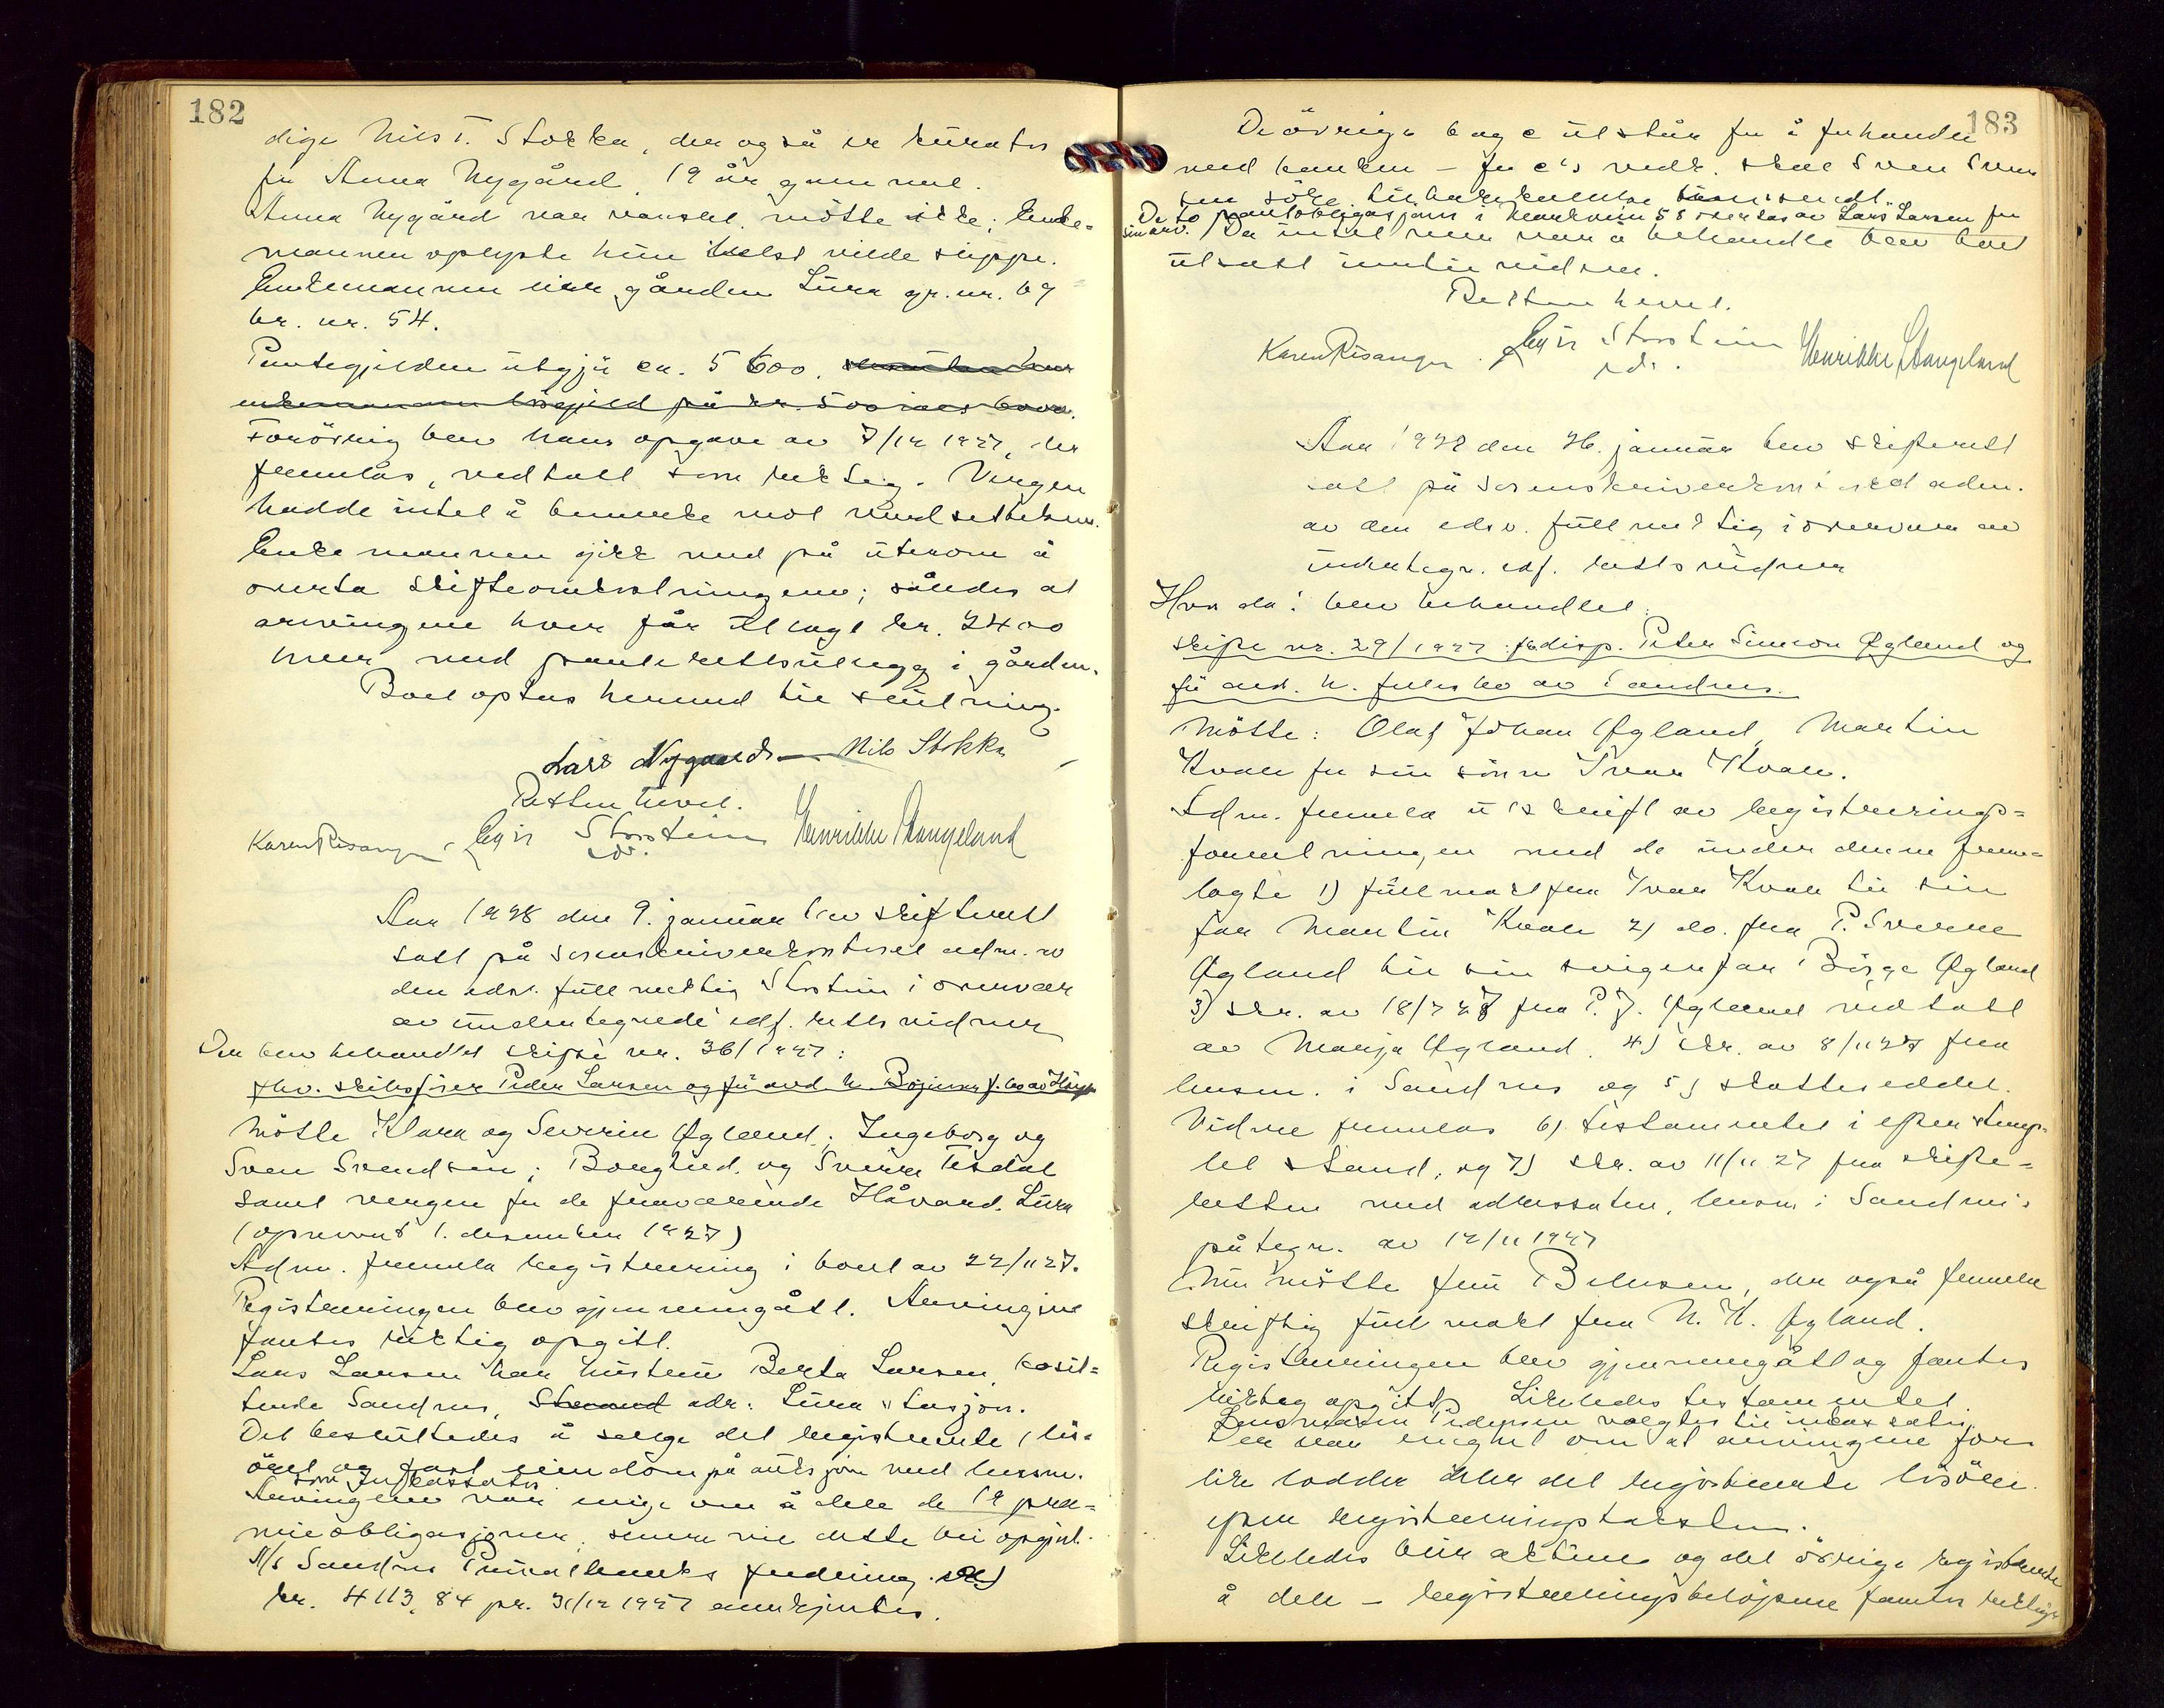 182
dige Nils T. Stokka, der også er kurator
for Anna Nygård, 19 år gammel.
Anna Nygård var varslet, møtte ikke; Enke=
mannen oplyste hun helst vilde slippe.
Enkemannen eier gården Lura gr. nr. 69
br. nr. 54.
Pantegjelden utgjør ca. 5600.
enkemannen løsgjeld på kr. 500
Forövrig blev hans opgave av 7/12 1927, der
fremlås, vedtatt som riktig. Vergen
hadde intet å bemerke mot verdsettelsen.
Enkemannen gikk med på utenom å
overta skifteomkostningene; således at
arvingene hver får tillagt kr. 2400
hver med panterettsutlegg i gården.
Boet optas hermed til slutning.
Lars Nygaard Nils Stokka
Retten hevet.
Karen Risanger Egir Storstein Henrikke Stangeland
edv.
Aar 1928 den 9. januar blev skifterett
satt på sorenskriverkontoret adm. av
den edsv. fullmektig Storstein i overvær
av undertegnede edf. rettsvidner
Der blev behandlet skifte nr. 36/1927:
fhv. skibsfører Peder Larsen og før avd. h. f. bo av
Møtte Klara og Severin Øgland; Ingeborg og
Sven Svendsen; Borghild og Sverre Tisdal
samt vergen for de fraværende Håvard Lura
(opnevnt 1. desember 1927)
Adm. fremla registrering i boet av 22/11 27.
Registreringen blev gjennemgått. Arvingene
fantes riktig opgitt.
Lars Larsen har hustru Berta Larsen, bosit=
tende Sandnes, Strand adr: Lura stasjon.
Det besluttedes å selge det registrerte lös=
öre og fast eiendom på auksjon med lensm.
som Inkassator.
Arvingene var enige om å dele de 12 pre=
mieobligasjoner, senere vil dette bli opgjort.
A/s Sandnes Privatbanks fordring
kr. 4113,84 pr. 31/12 1927 anerkjentes.
183
De övrige b og c utstår for å forhandle
med banken - for c's vedk. skal Sven Sven
sen söke
De to pantobligasjoner i overtas av Lars Larsen for
sin arv. / Da intet mere var å behandle blev boet
utsatt inntil videre.
Retten hevet.
Karen Risanger. Egir Storstein Henrikke Stangeland
edv.
Aar 1928 den 26. januar blev skifterett
satt på sorenskriverkontoret adm.
av den edsv. fullmektig i overvær av
undertegn. edf. rettsvidner
Hvor da: blev behandlet
skifte nr. 29/1927: fhv. disp. Peter Simon Øgland og
før avd. h. felles bo av Sandnes.
Møtte: Olaf Johan Øgland, Martin
Kvale for sin sönn Ivar Kvale.
Adm. fremla utskrift av registrerings=
forretningen med de under denne frem=
lagte 1) fullmakt fra Ivar Kvale til sin
far Martin Kvale 2) do. fra P. Sverre
Øgland til sin svigerfar Börge Øgland
3) skr. av 18/7 27 fra P. J. Øgland vedtatt
av Marja Øgland. 4) skr. av 8/11 27 fra
lensm. i Sandnes og 5) skatteseddel.
Videre fremlås 6) testamentet i efter stemp=
let stand, og 7) skr. av 11/11 27 fra skifte=
retten med adressaten, lensm i Sandnes
påtegn. av 12/11 1927
Nu møtte fru Behrsen, der også fremla
skriftlig fullmakt fra N. K. Øgland.
Registreringen blev gjennemgått og fantes
riktig opgitt. Likeledes testamentet.
Lensmann Pedersen valgtes til inkassator.
Der var enighet om at arvingene for
like lodder deler det registrerte lösöre
efter registreringstaksten.
Likeledes blir aktiene og det övrige registrerte
å dele - registreringsbelöpene fantes riktige